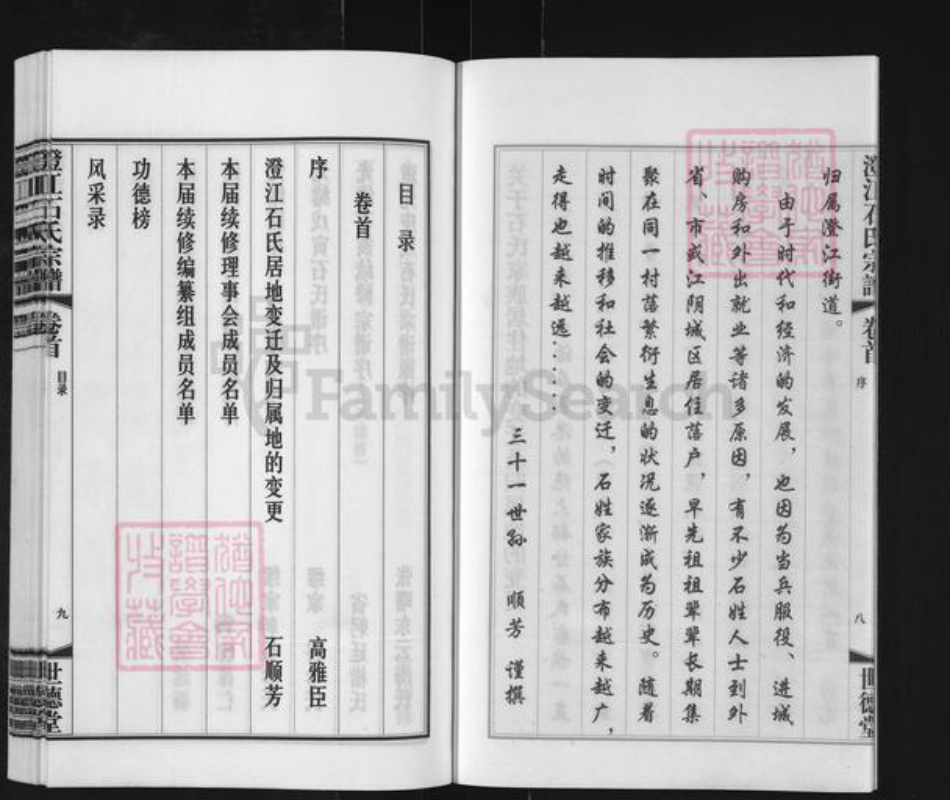 澄江石氏宗谱
卷首
序
八
世德堂
归属澄江街道。
由于时代和经济的发展，也因为当兵服役、进城
购房和外出就业等诸多原因，有不少石姓人士到外
省、市或江阴城区居住落户，早先祖祖辈辈长期集
聚在同一村落繁衍生息的状况逐渐成为历史。随着
时间的推移和社会的变迁，石姓家族分布越来越广，
走得也越来越远……
三十一世孙 顺芳 谨撰
目录
卷首
序 高雅臣
澄江石氏居地变迁及归属地的变更 石顺芳
本届续修理事会成员名单
本届续修编纂组成员名单
功德榜
风采录
澄江石氏宗谱
卷首
目录
九
世德堂
FamilySearch